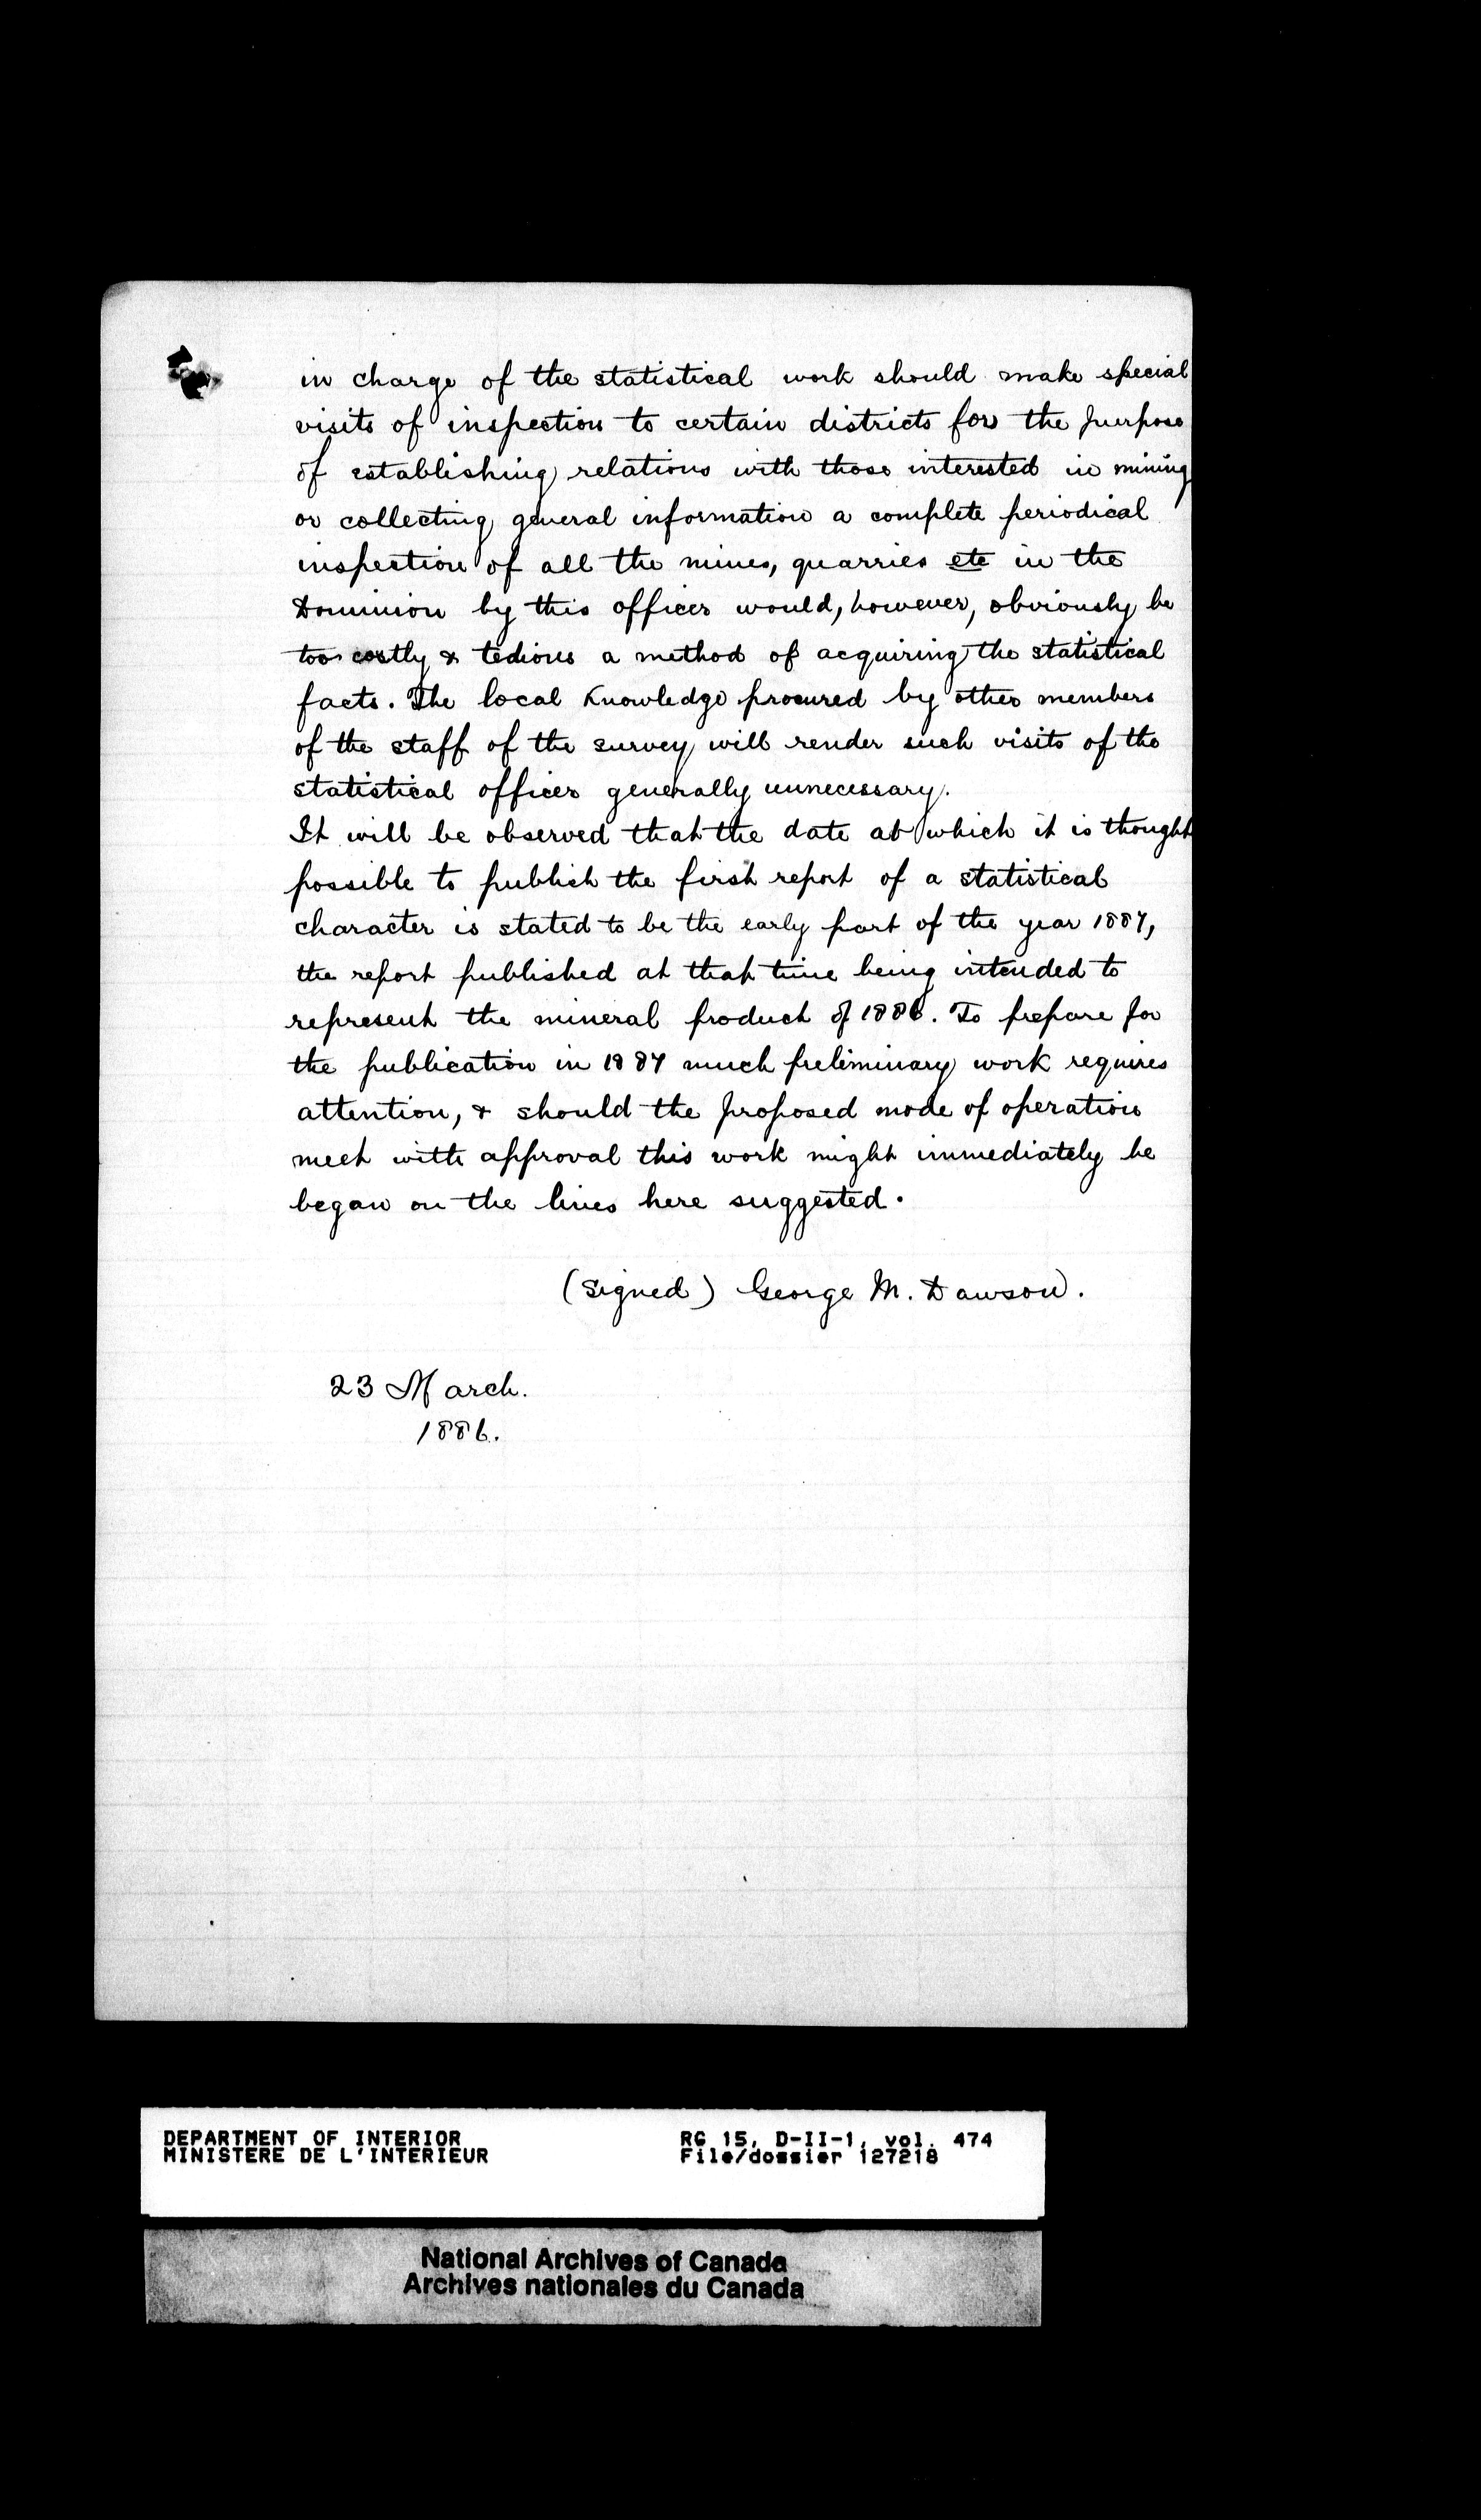 in charge of the statistical work should make special
visits of inspection to certain districts for the purpose
of establishing relations with those interested in mining
or collecting general information a complete periodical
inspection of all the mines, quarries etc in the
Dominion by this officer would, however, obviously be
too costly & tedious a method of acquiring the statistical
facts. The local knowledge procured by other members
of the staff of the survey will render such visits of the
statistical officer generally unnecessary.
It will be observed that the date at which it is thought
possible to publish the first report of a statistical
character is stated to be the early part of the year 1887,
the report published at that time being intended to
represent the mineral product of 1886. To prepare for
the publication in 1887 much preliminary work requires
attention, & should the proposed mode of operation
meet with approval this work might immediately be
began on the lines here suggested.
(Signed) George M. Dawson.
23 March.
1886.
DEPARTMENT OF INTERIOR RG 15, D-II-1, vol. 474
MINISTERE DE L'INTERIEUR File/dossier 127218
National Archives of Canada
Archives nationales du Canada